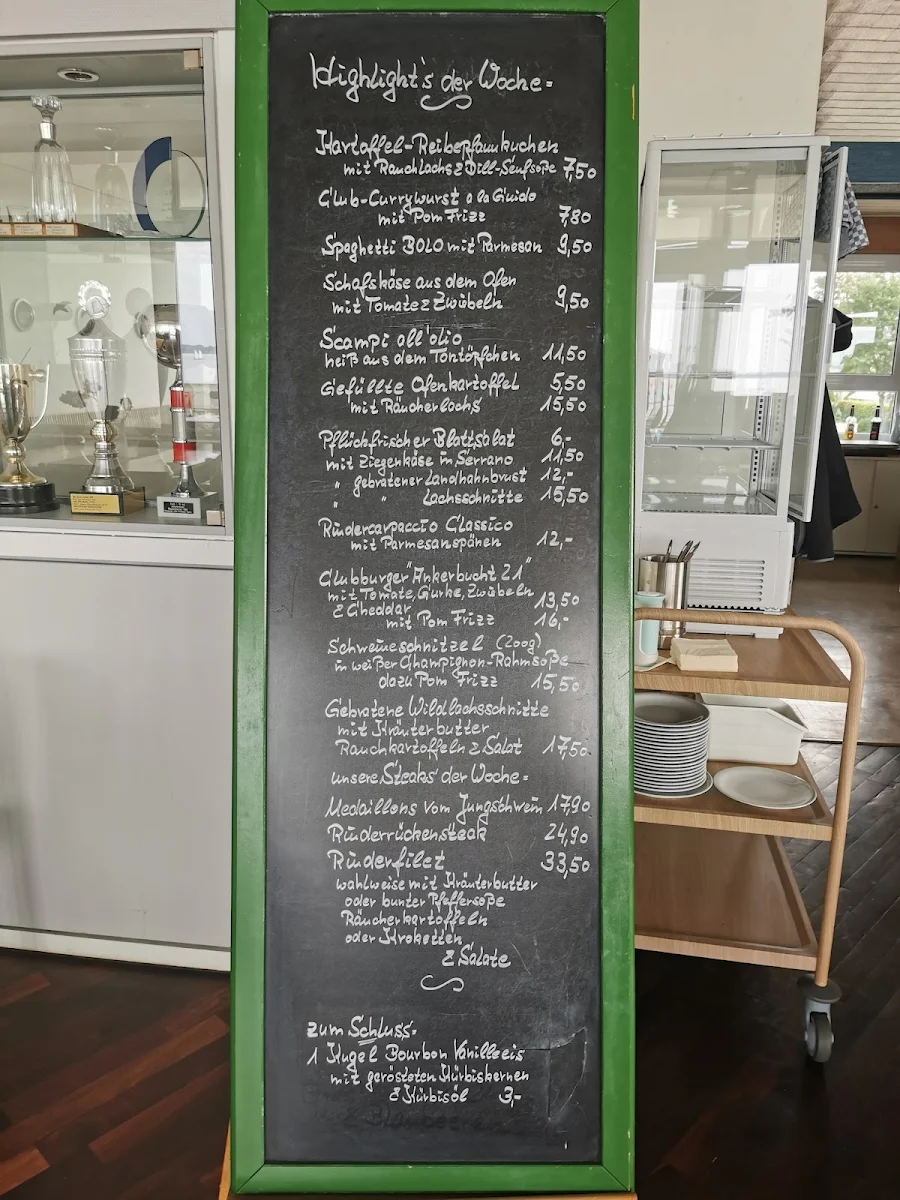 Highlight's der Woche=
Kartoffel-Reibepfannkuchen
mit Rauchlachs & Dill-Senfsoße 7,50
Club-Currywurst a la Guido
mit Pom Frizz 7,80
Spaghetti BOLO mit Parmesan 9,50
Schafskäse aus dem Ofen
mit Tomate & Zwiebeln 9,50
Scampi all'olio
heiß aus dem Tontöpfchen 11,50
Gefüllte Ofenkartoffel 5,50
mit Räucherlachs 15,50
Pflückfrischer Blattsalat 6,-
mit Ziegenkäse in Serrano 11,50
" gebratener Landhahnbrust 12,-
" " Lachsschnitte 15,50
Rindercarpaccio Classico
mit Parmesanspänen 12,-
Clubburger "Ankerbucht 21"
mit Tomate, Gurke, Zwiebeln
& Cheddar 13,50
mit Pom Frizz 16,-
Schweineschnitzel (200g)
in weißer Champignon-Rahmsoße
dazu Pom Frizz 15,50
Gebratene Wildlachsschnitte
mit Kräuterbutter
Rauchkartoffeln & Salat 17,50
unsere Steaks der Woche=
Medaillons vom Jungschwein 17,90
Rinderrückensteak 24,90
Rinderfilet 33,50
wahlweise mit Kräuterbutter
oder bunter Pfeffersoße
Räucherkartoffeln
oder Kroketten
& Salate
zum Schluss=
1 Kugel Bourbon Vanilleeis
mit gerösteten Kürbiskernen
& Kürbisöl 3,-